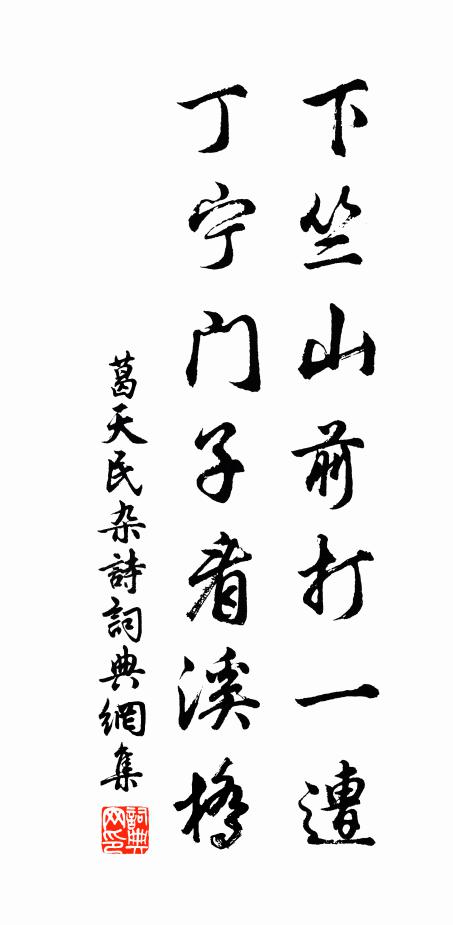 下竺山前打一遭
丁宁门子看溪橋
葛天民杂詩詞典網集
詞典網印